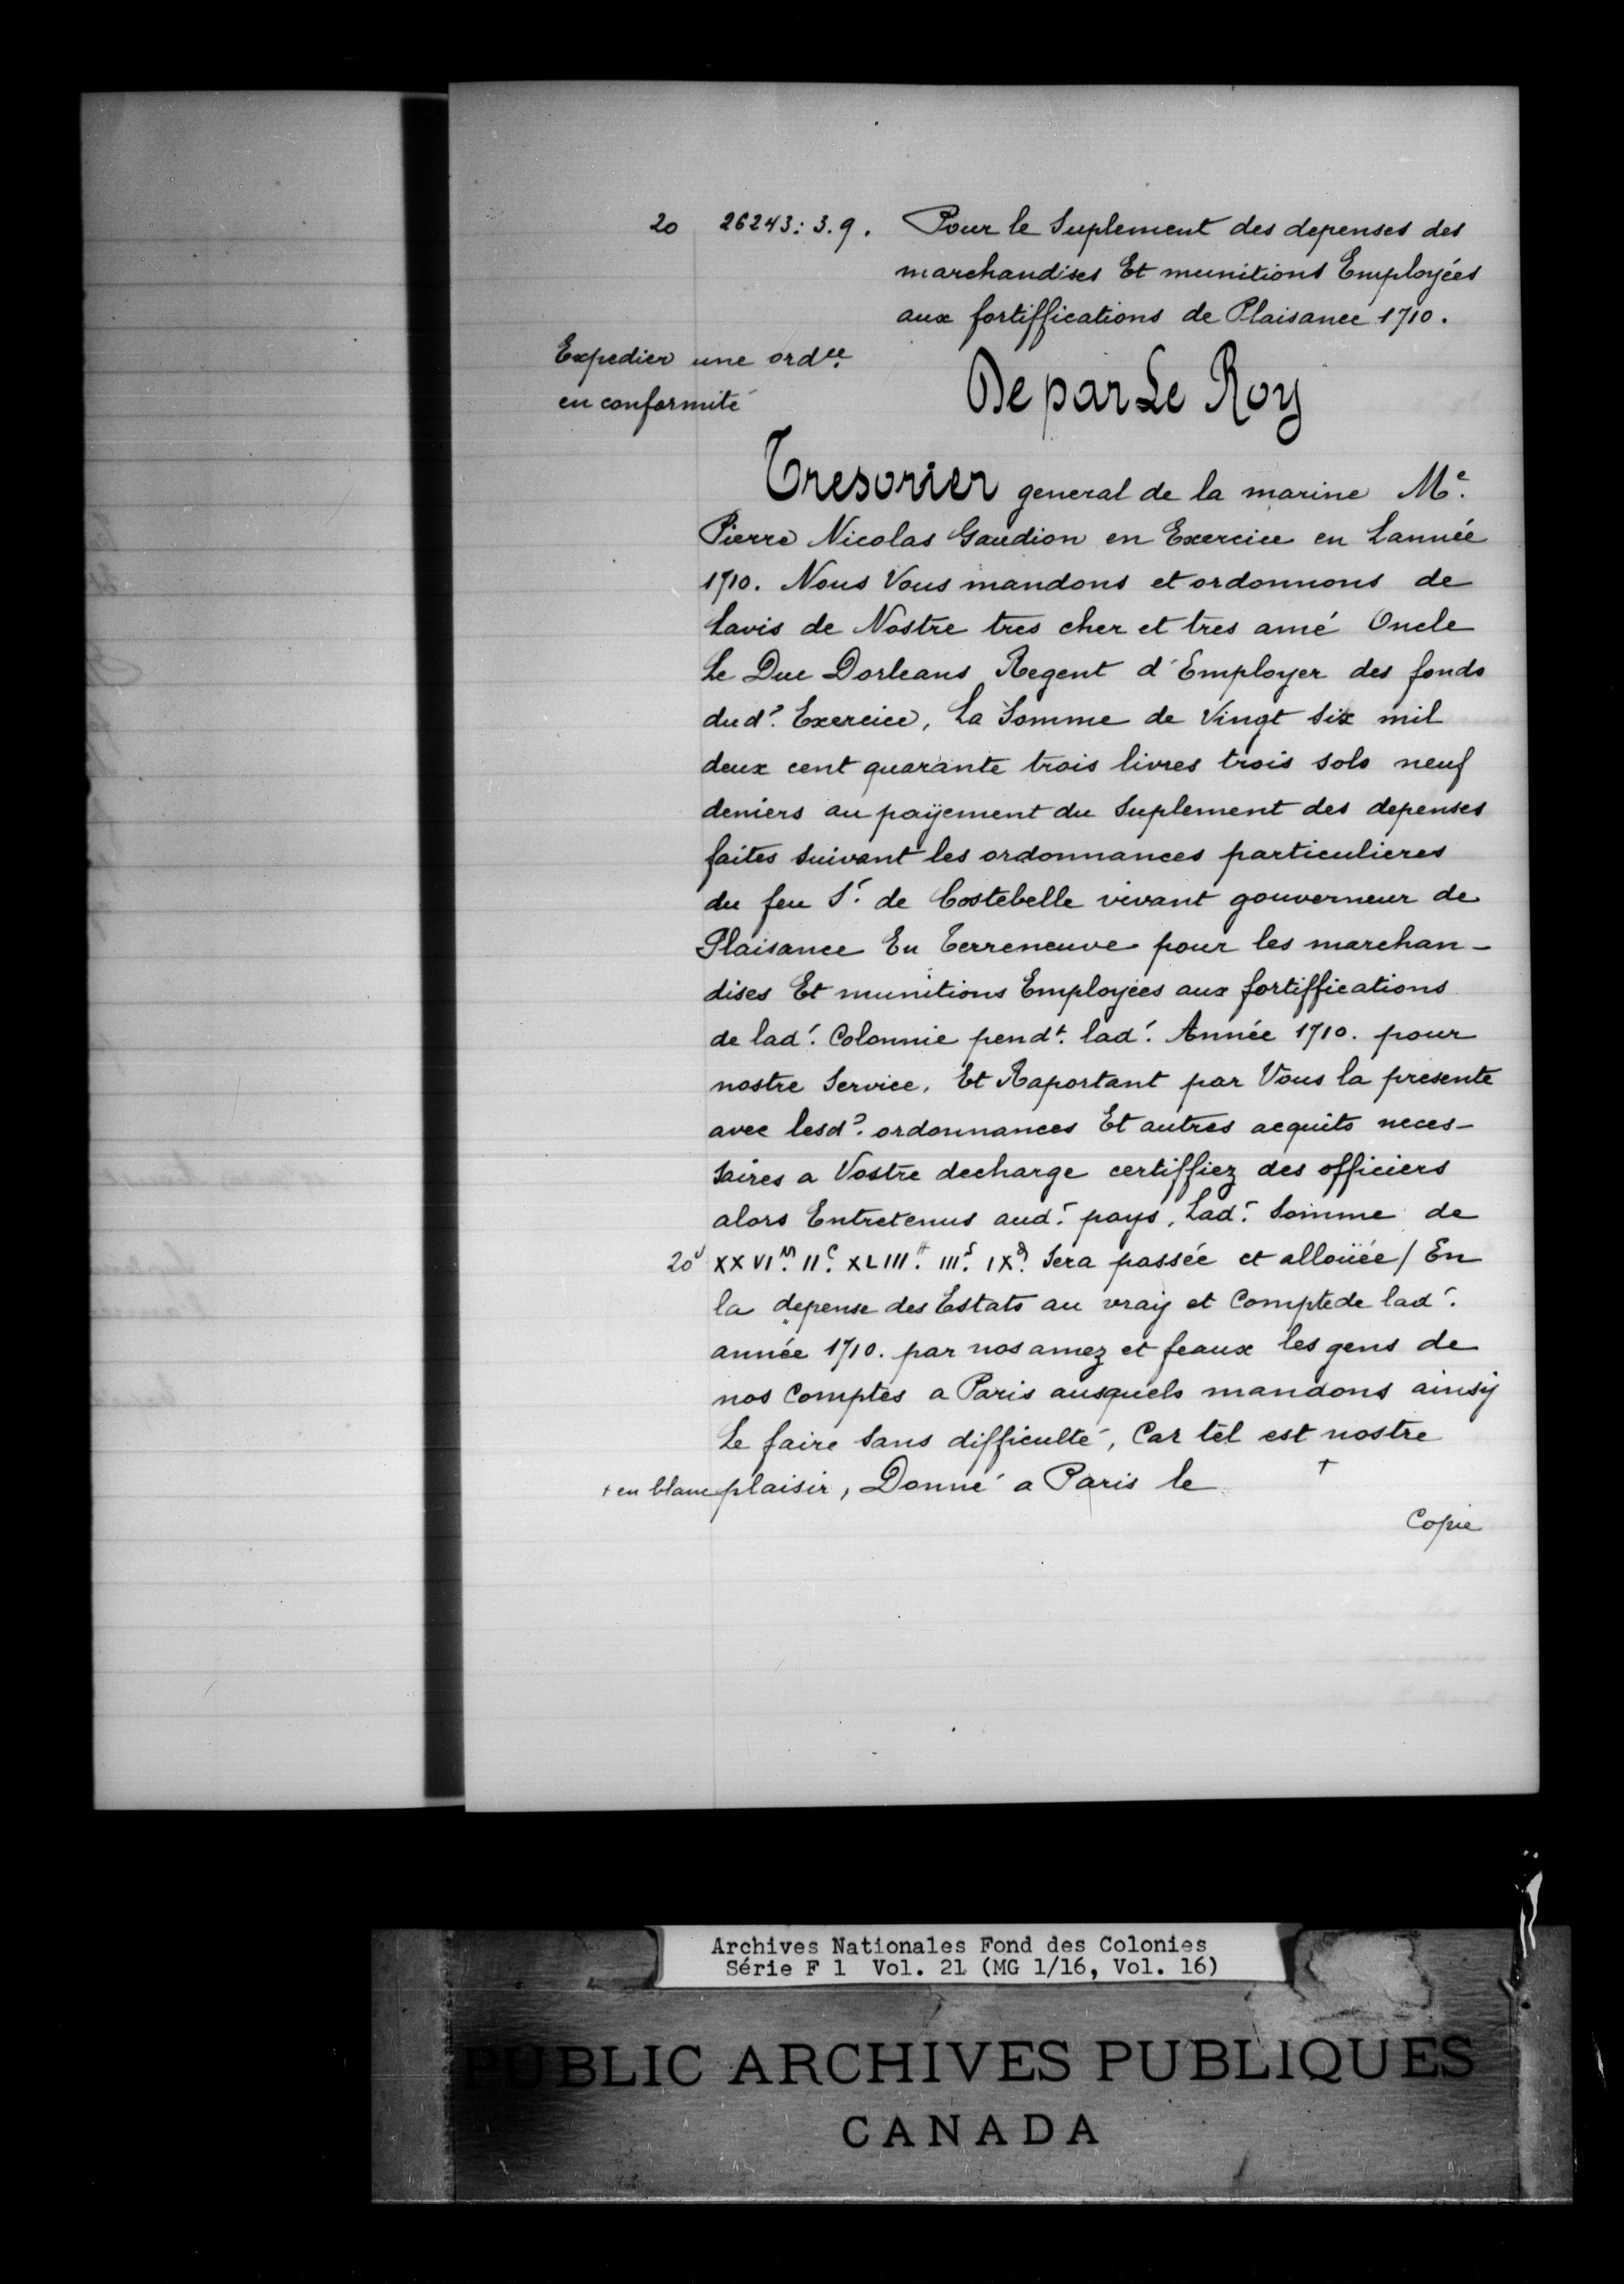 20 26243: 3. 9. Pour le Suplement des depenses des
marchandises Et munitions Employées
aux fortiffications de Plaisance 1710.
Expedier une ordce.
en conformité
De par Le Roy
Tresorier general de la marine Me.
Pierre Nicolas Gaudion en Exercice en Lannée
1710. Nous Vous mandons et ordonnons de
Lavis de Nostre tres cher et tres amé Oncle
Le Duc Dorleans Regent d'Employer des fonds
dud? Exercice, La Somme de Vingt Six mil
deux cent quarante trois livres trois sols neuf
deniers au payëment du Suplement des depenses
faites Suivant les ordonnances particulieres
du feu Sr. de Costebelle vivant gouverneur de
Plaisance En Terreneuve pour les marchan-
dises Et munitions Employées aux fortiffications
de lad'. Colonnie pendt. lad'. Année 1710. pour
nostre Service, Et Raportant par Vous la presente
avec lesd? ordonnances Et autres acquits neces-
Saires a Vostre decharge certiffiez des officiers
alors Entretenus aud'. pays, Lad'. Somme de
20 XXVIM. IIC. XLIII#. IIIS. IXd. Sera passée et alloüée / En
la depense des Estats au vray et Compte de lad'.
année 1710. par nos amez et feaux les gens de
nos Comptes a Paris ausquels mandons ainsy
Le faire Sans difficulté, Car tel est nostre
+ en blanc plaisir, Donné a Paris le +
Copie
Archives Nationales Fond des Colonies
Série F 1 Vol. 21 (MG 1/16, Vol. 16)
PUBLIC ARCHIVES PUBLIQUES
CANADA